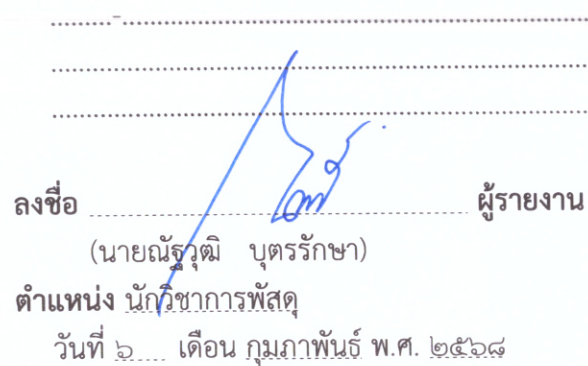 ลงชื่อ ........................................ ผู้รายงาน
(นายณัฐวุฒิ บุตรรักษา)
ตำแหน่ง นักวิชาการพัสดุ
วันที่ ๖ เดือน กุมภาพันธ์ พ.ศ. ๒๕๖๘